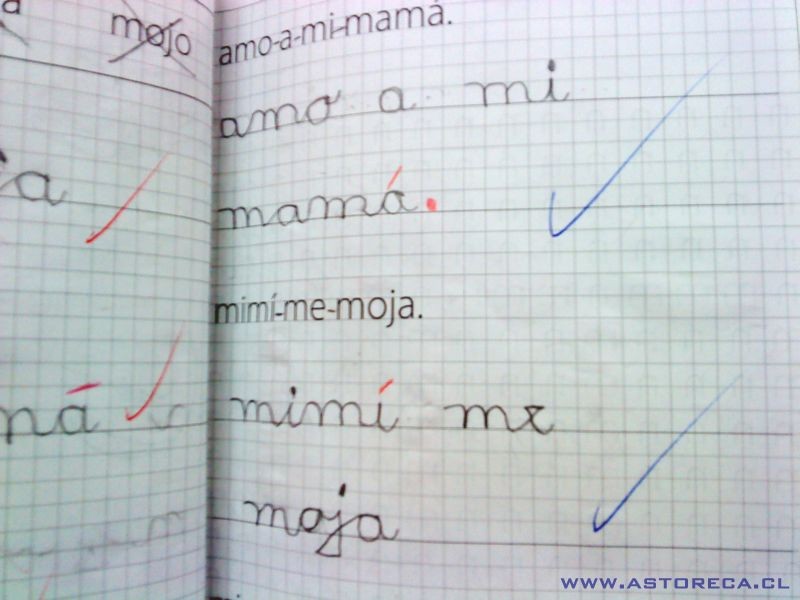 mojo
amo-a-mi-mamá.
amo a mi
mamá.
mimí-me-moja.
mimí me
moja
www.astoreca.cl